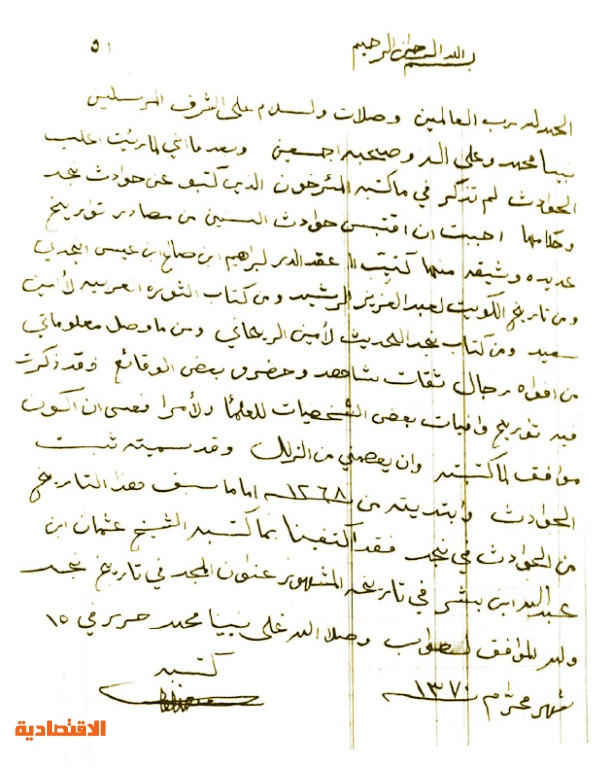 بسم الله الرحمن الرحيم
٥١
الحمد لله رب العالمين وصلات ولسلام على اشرف المرسلين
نبينا محمد وعلى اله وصحبه اجمعين وبعد ما اني لما رئيت اغلب
الحوادث لم تذكر في ما كتبه المئرخون الذين كتبو عن حوادث نجد
احببت ان اقتبس حوادث السنين من مصادر تواريخ
عديده وثيقه منها كتيب عقد الدرر لبراهيم ابن صالح ابن عيسى النجدي
ومن تاريخ الكويت لعبد العزيز الرشيد ومن كتاب الثوره العربيه لأمين
سعيد ومن كتاب نجد الحديث لأمين الريحاني ومن ما وصل معلوماتي
من افواه رجال ثقات شاهدو حضرو بعض الوقائع وقد ذكرت
فيه تؤريخ وافيات بعض الشخصيات للعلمأ ولأمرا فعسى ان اكون
موافق لما كتبته وان يعصمني من الزلل وقد سميته ثبت
الحوادث وأبتديته من ١٢٦٨ اما ما سبق هذا التاريخ
من الحوادث في نجد فقد اكتفينا بما كتبه الشيخ عثمان ابن
عبد الله ابن بشر في تاريخه المشهور عنوان المجد في تاريخ نجد
ولله الموافق لصواب وصلا الله على نبينا محمد حرر في ١٥
شهر محرم سنه ١٣٧٠
كتبه
الاقتصادية